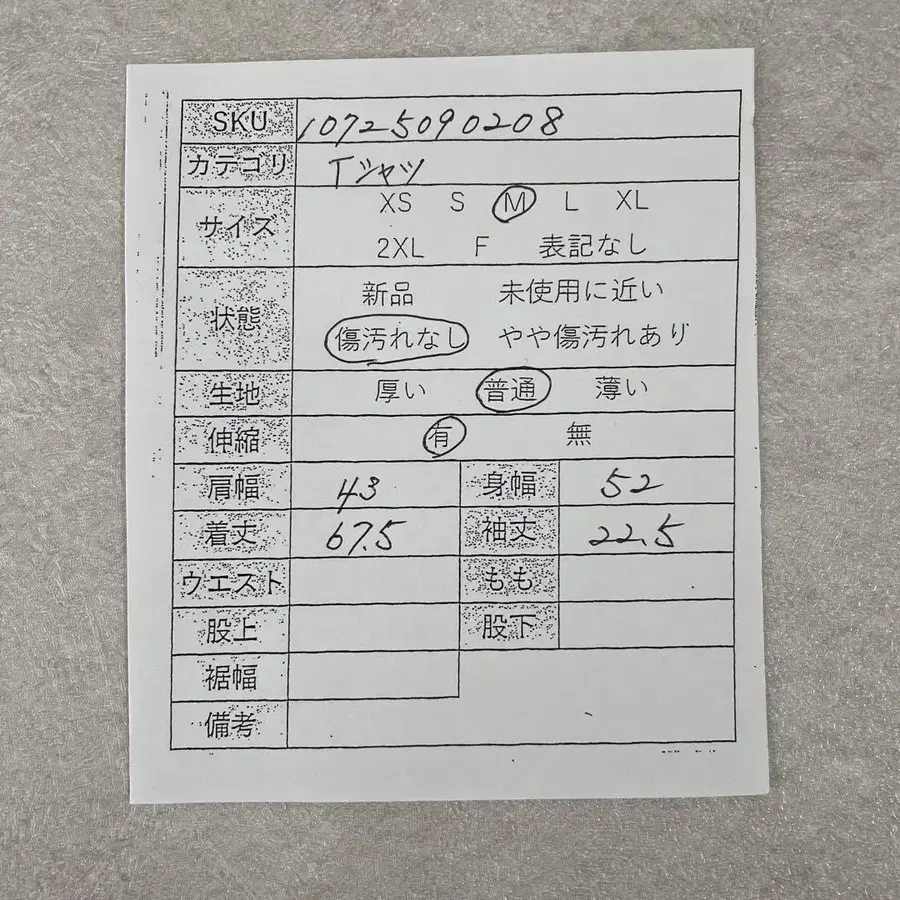 SKU 10725090208
カテゴリ Tシャツ
サイズ XS S M L XL
2XL F 表記なし
状態 新品 未使用に近い
傷汚れなし やや傷汚れあり
生地 厚い 普通 薄い
伸縮 有 無
肩幅 43 身幅 52
着丈 67.5 袖丈 22.5
ウエスト もも
股上 股下
裾幅
備考